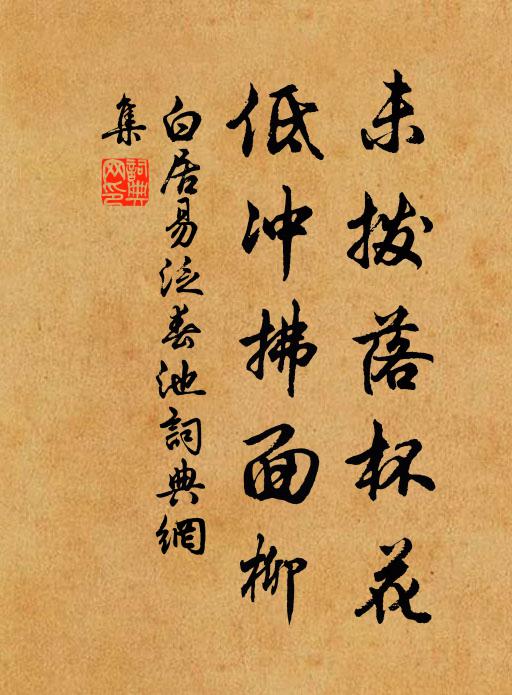 未拨落杯花
低冲拂面柳
白居易泛春池詞典網
集
詞典
网印